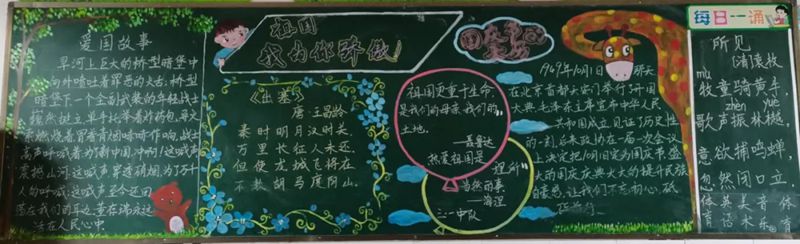 爱国故事
旱河上巨大的桥型暗堡中
向外喷吐着罪恶的火舌,桥型
暗堡下一个全副武装的年轻战士
挺然挺立,单手托举着炸药包,导火
索燃烧着冒着青烟嗞嗞作响,战士
高声呼喊着:为了新中国,冲啊!这喊声
震撼山河,这喊声穿透硝烟,为了千千
人的呼喊,这喊声至今还回
荡在我们的耳边,董存瑞永远
活在人民心中。
祖国
我为你骄傲
《出塞》
唐·王昌龄
秦时明月汉时关
万里长征人未还
但使龙城飞将在
不教胡马度阴山。
祖国更重于生命,
是我们的母亲,我们的
土地。
——聂鲁达
热爱祖国是
理所
当然的事
——海涅
三·一中队
国庆节
1949年10月1日
在北京首都天安门举行了开国
大典,毛泽东主席宣布中华人民
共和国成立,见证了历史性
的一刻,后来政协在一届一次会议
上决定把10月1日定为国庆节,盛
大的国庆庆典大大的提升民族
自豪感,让我们不忘初心,砥
砺前行
每日一诵
所见
(清)袁枚
mù
牧童骑黄牛,
zhèn yuè
歌声振林樾。
意欲捕鸣蝉,
忽然闭口立。
体 英 美 音 体
育 语 术 乐 育